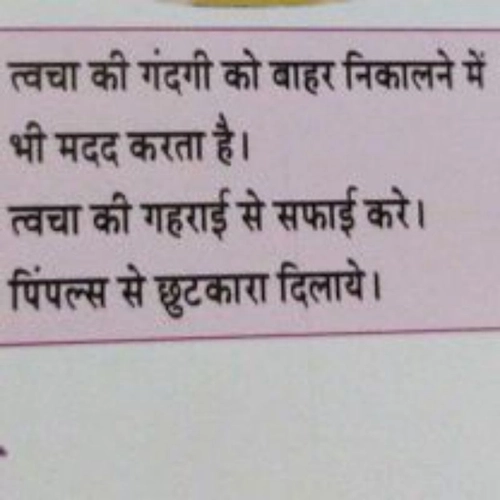 त्वचा की गंदगी को बाहर निकालने में
भी मदद करता है।
त्वचा की गहराई से सफाई करे।
पिंपल्स से छुटकारा दिलाये।